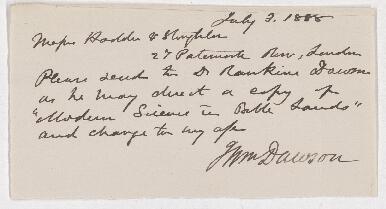 July 3. 1888
Messrs Hodder & Stoughton
27 Paternoster Row, London
Please send to Dr Rankine Dawson
as he may direct a copy of
"Modern Science in Bible Lands"
and charge to my a/c
J Wm Dawson